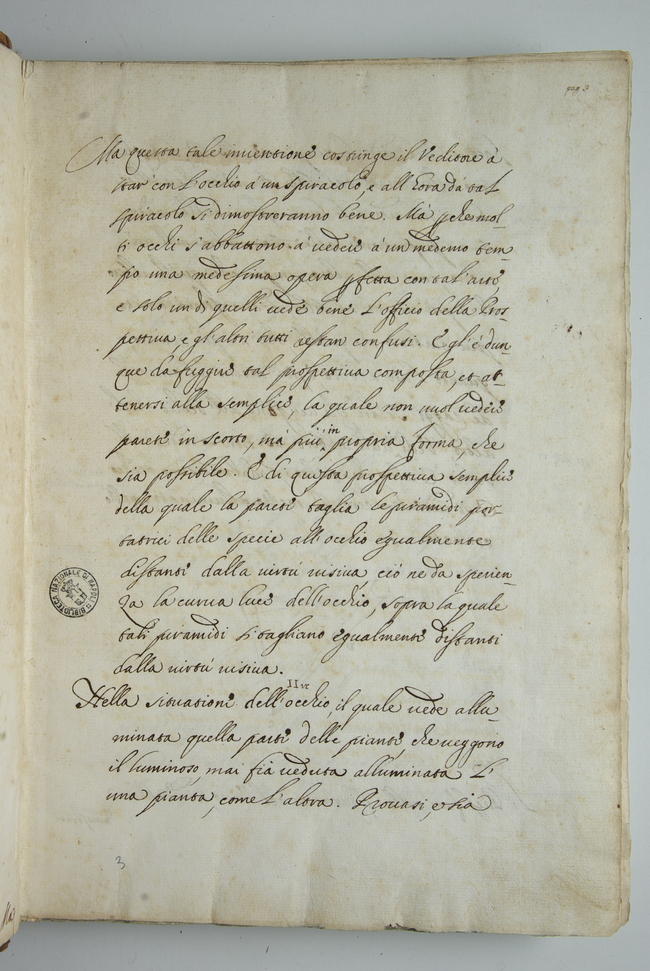 pag 3
Ma questa tale inventione costringe il Veditore à
star con l'occhio à un spiracolo, e all'hora dà tal
spiracolo si dimostreranno bene. Mà p che mol-
ti occhi s'abbattono à vedere à un medemo tem-
po una medesima opera pfetta con tal'arte,
e solo un di quelli vede bene l'officio della Pros-
pettiva, e gl'altri tutti restan confusi. Egl'è dun-
que da fuggire tal prospettiva composta, et at-
tenersi alla semplice, la quale non vuol vedere
pareti in scorto, mà più in propria forma, che
sia possibile. E di questa prospettiva semplice
della quale la parete taglia le piramidi por-
tatrici delle specie all'occhio egualmente
distanti dalla virtú visiva, ció ne da sperien-
za la curva luce dell'occhio, sopra la quale
tali piramidi si tagliano egualmente distanti
dalla virtú visiva.
Nella situatione dell'occhio, il quale vede allu-
minata quella parte delle piante, che veggono
il luminoso, mai fia veduta alluminata l'
una pianta, come l'altra. Provasi, e sia
BIBLIOTECA NAZIONALE DI NAPOLI
3